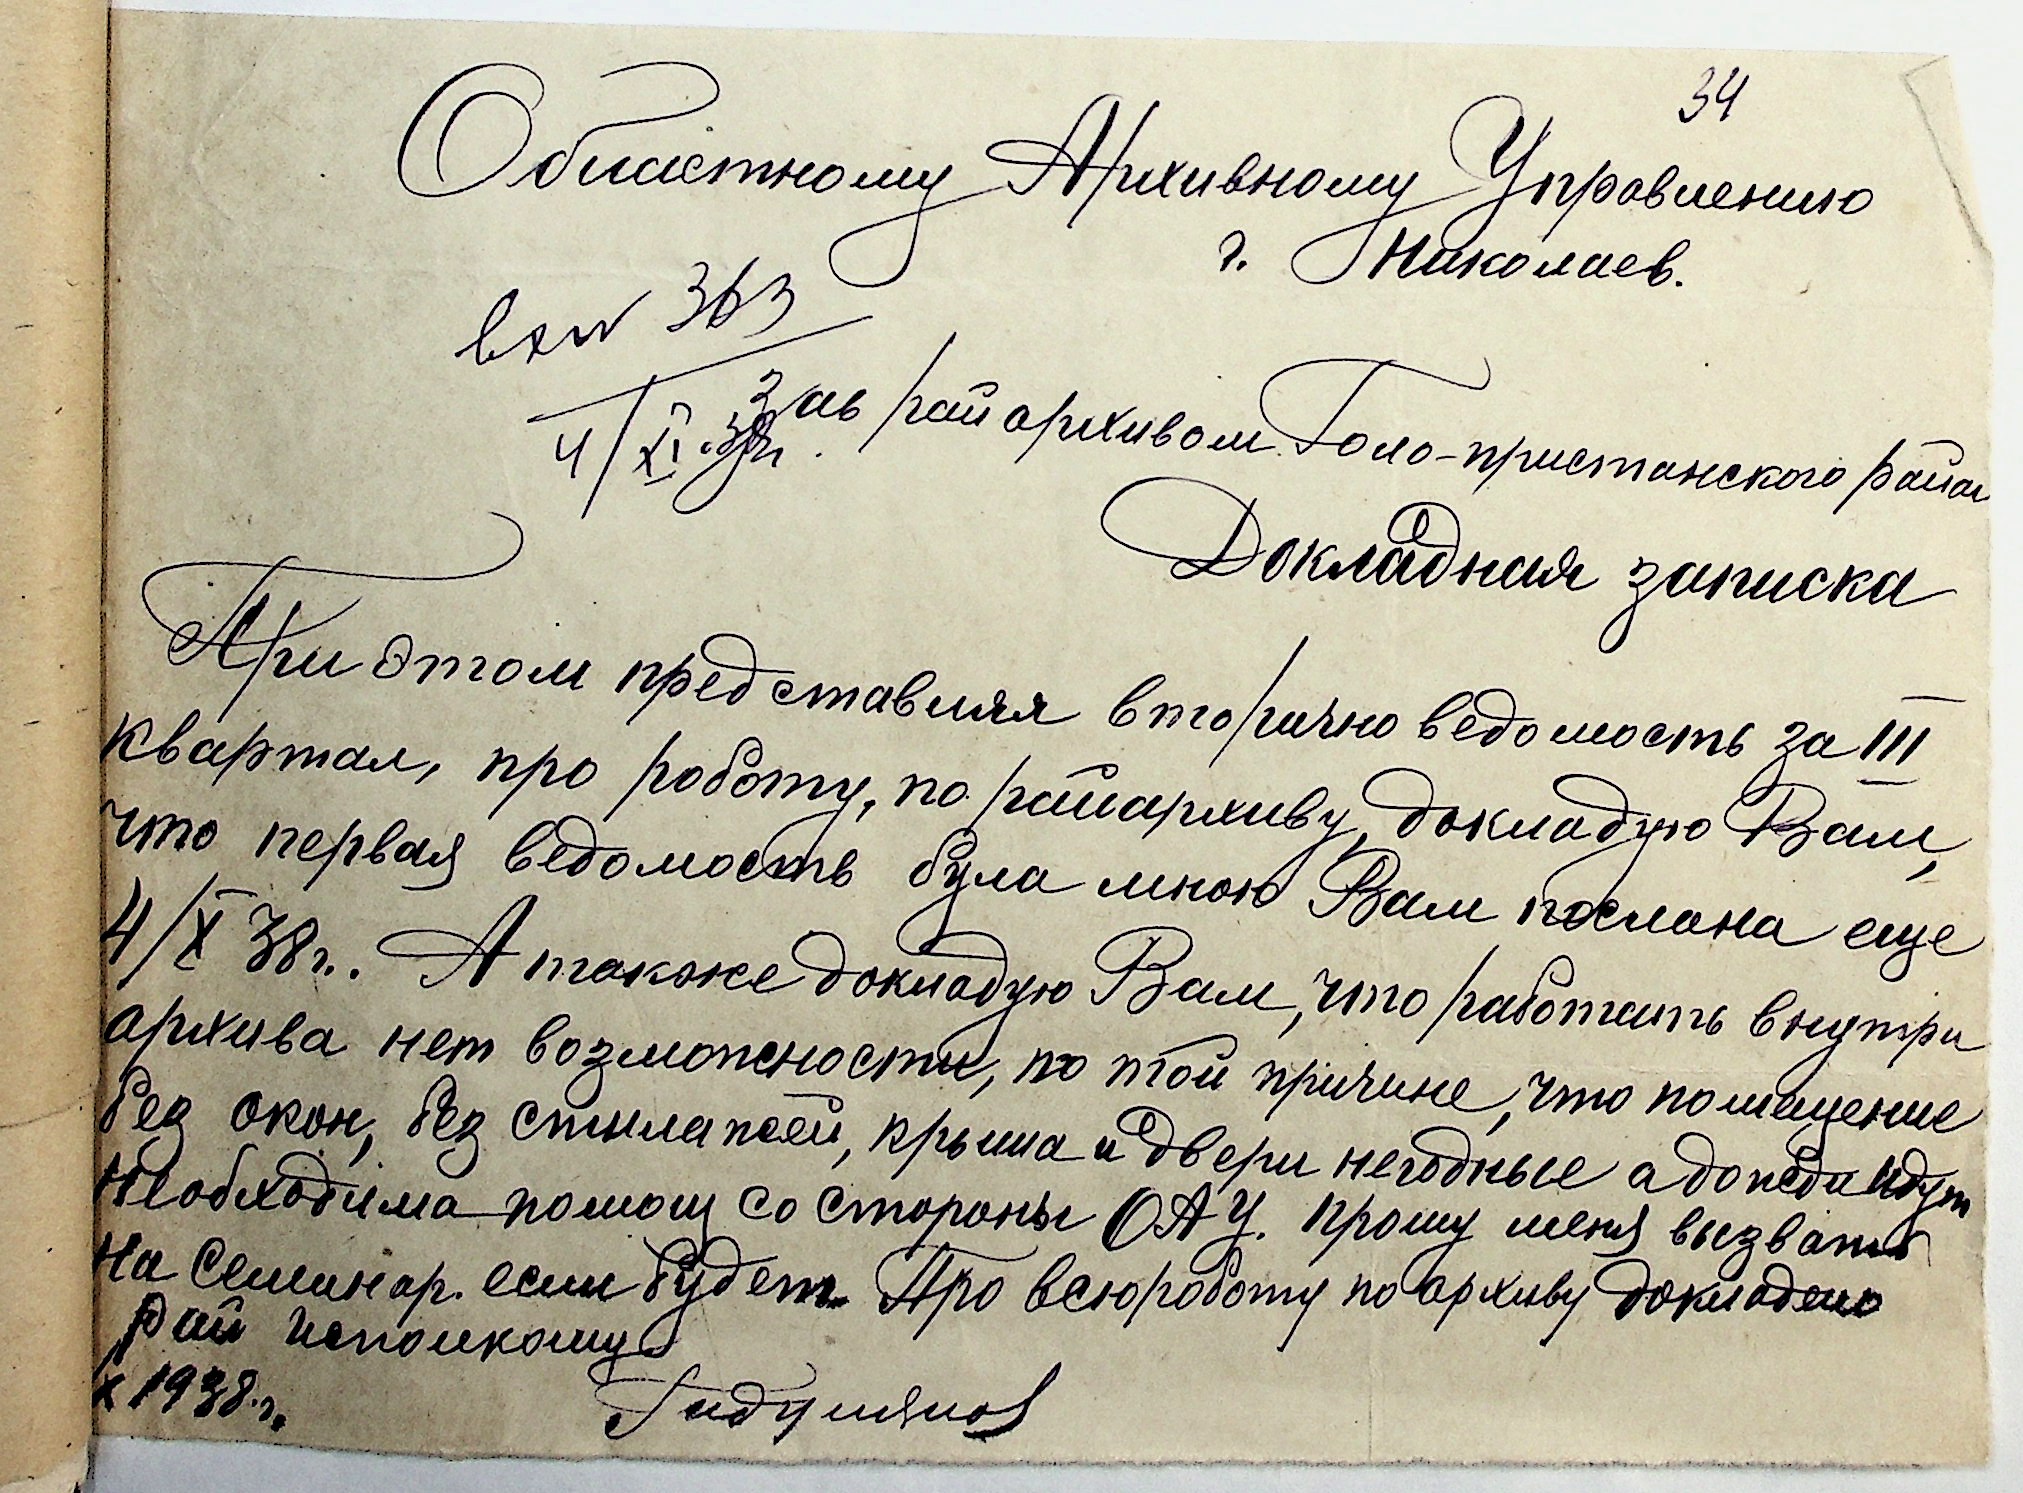 34
Областному Архивному Управлению
г. Николаев.
вх № 363
4/XI.38г.
Зав райархивом Голо-пристанского район
Докладная записка
При этом представляя вторично ведомость за III
квартал, про роботу, по райархиву, докладую Вам,
что первая ведомость була мною Вам послана еще
4/X 38г.. А также докладую Вам, что работать внутри
архива нет возможности, по той причине, что помещение
без окон, без стилажей, крыша и двери негодные а дожди идут
Необходима помощ со стороны ОАУ. прошу меня вызвать
на Семинар. если будет. Про всю роботу по архиву докладено
Рай исполкому.
X 1938.г.